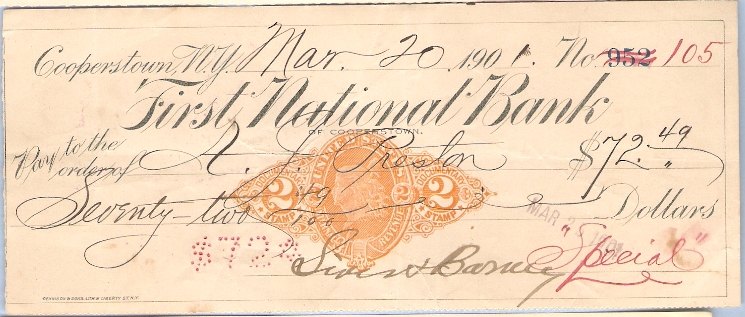 Cooperstown, N.Y. Mar. 20 1901. No. 952 105
First National Bank
OF COOPERSTOWN.
Pay to the order of Preston $72.49
UNITED STATES
DOCUMENTARY
2 2 2
STAMP STAMP
REVENUE
Seventy-two 49/100 Dollars
MAR
$72
& Barney "Special"